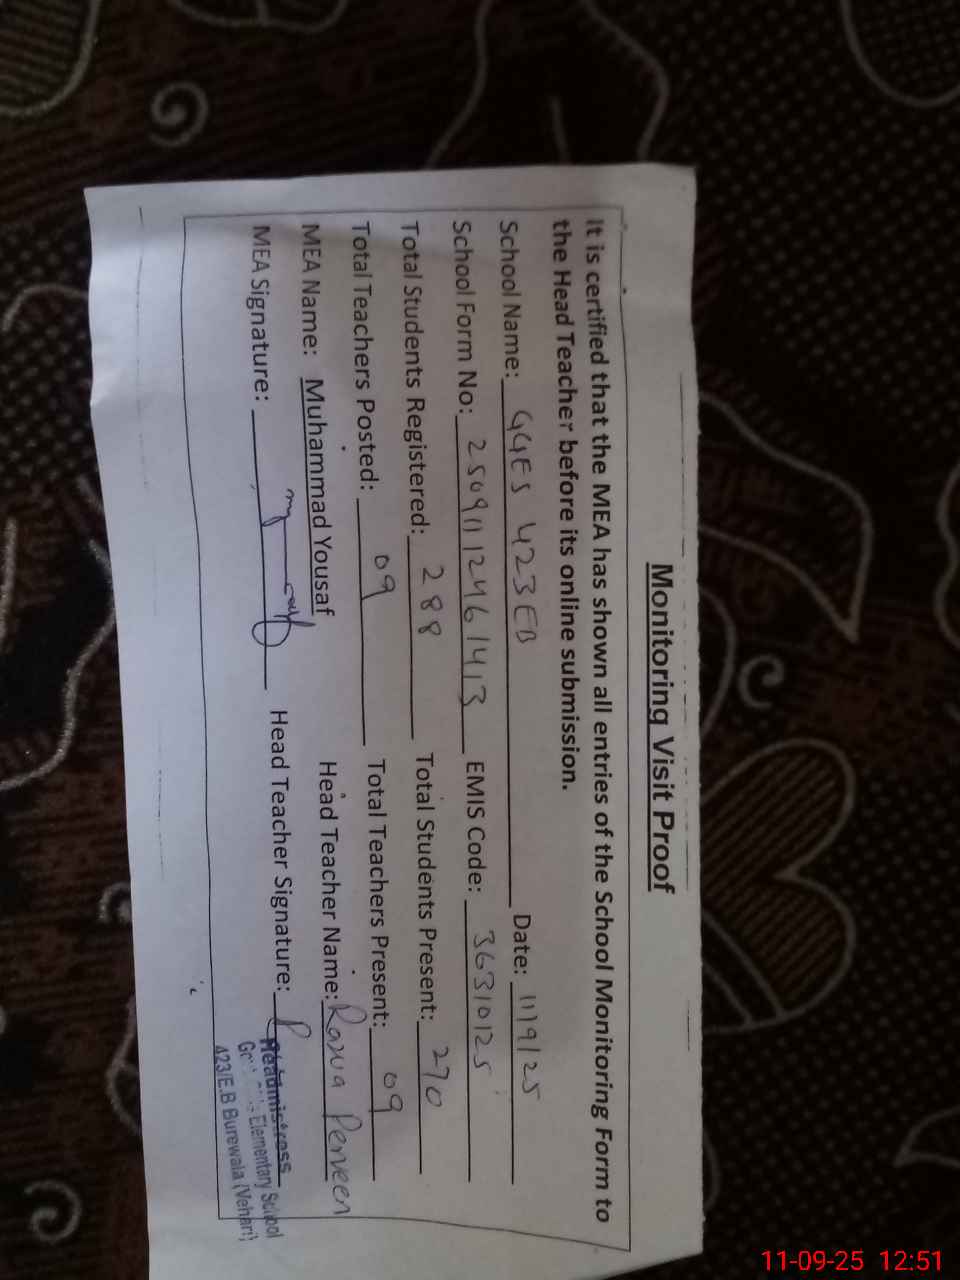 Monitoring Visit Proof
It is certified that the MEA has shown all entries of the School Monitoring Form to
the Head Teacher before its online submission.
School Name: GGES 423EB Date: 11/9/25
School Form No: 25091112461413 EMIS Code: 36310125
Total Students Registered: 288 Total Students Present: 270
Total Teachers Posted: 09 Total Teachers Present: 09
MEA Name: Muhammad Yousaf Head Teacher Name: Perveen
MEA Signature: Head Teacher Signature:
Headmistress
Elementary School
423/E.B Burewala (Vehari)
11-09-25 12:51